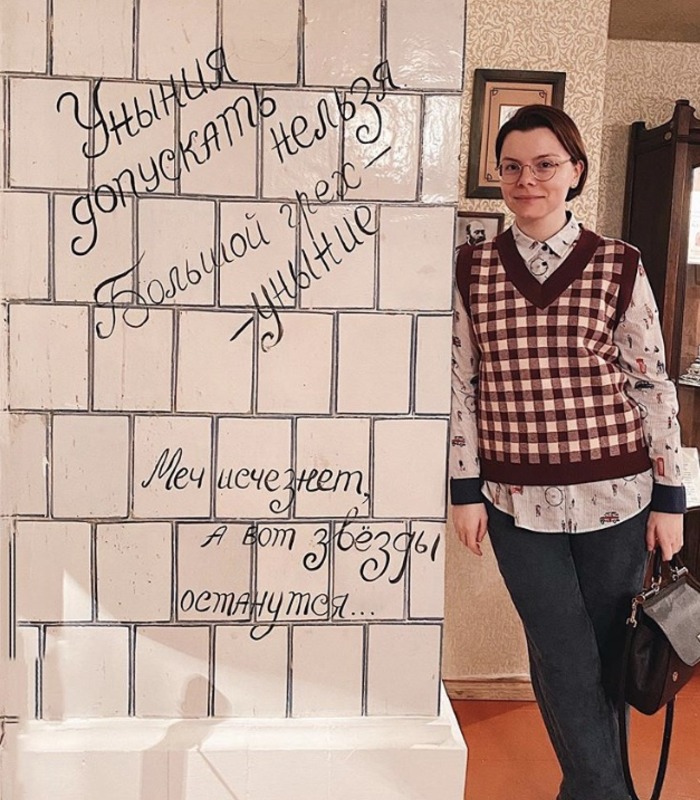 Уныния
допускать нельзя
Большой грех –
– уныние
Меч исчезнет,
А вот звёзды
останутся...